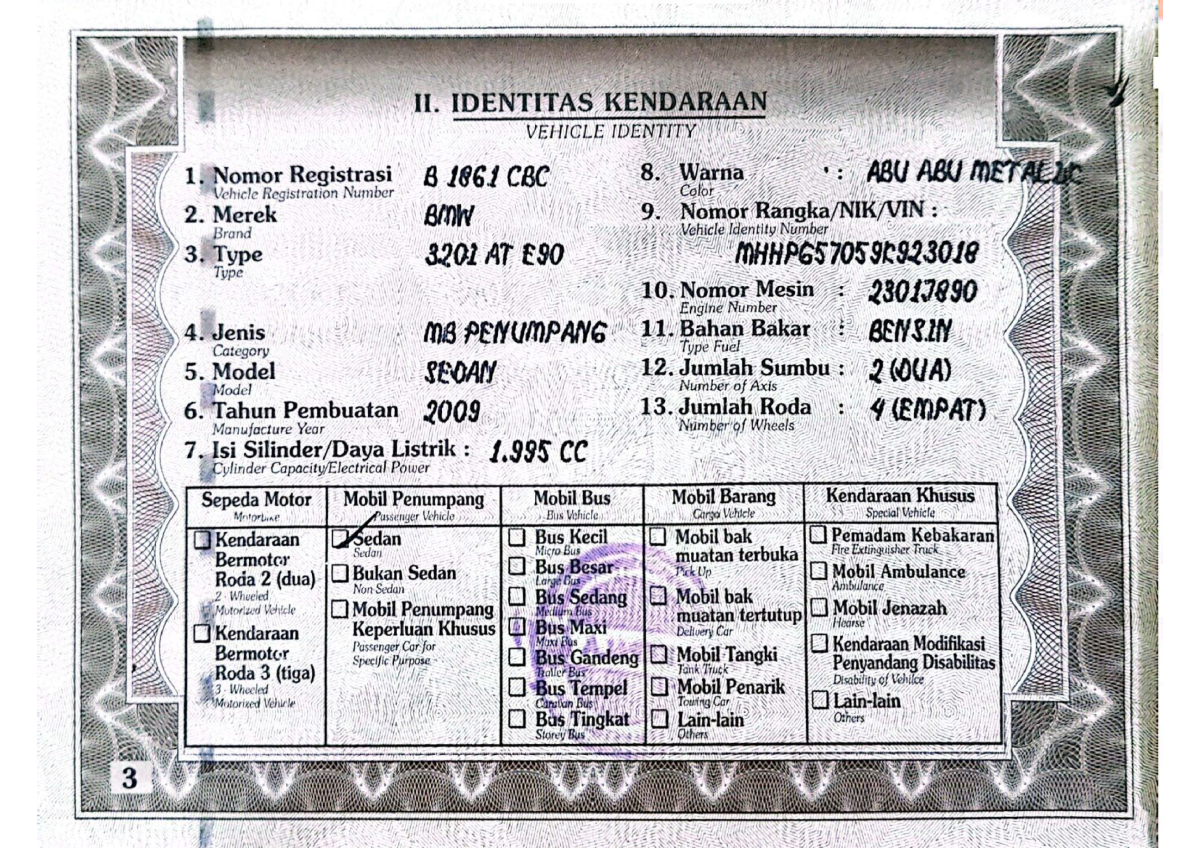 II. IDENTITAS KENDARAAN
VEHICLE IDENTITY
1. Nomor Registrasi B 1861 CBC
Vehicle Registration Number
2. Merek BMW
Brand
3. Type 320I AT E90
Type
4. Jenis MB PENUMPANG
Category
5. Model SEDAN
Model
6. Tahun Pembuatan 2009
Manufacture Year
7. Isi Silinder/Daya Listrik : 1.995 CC
Cylinder Capacity/Electrical Power
8. Warna : ABU ABU METALIC
Color
9. Nomor Rangka/NIK/VIN :
Vehicle Identity Number
MHHPG57059C923018
10. Nomor Mesin : 23017890
Engine Number
11. Bahan Bakar : BENSIN
Type Fuel
12. Jumlah Sumbu : 2 (DUA)
Number of Axis
13. Jumlah Roda : 4 (EMPAT)
Number of Wheels
Sepeda Motor
Motorbike
Kendaraan
Bermotor
Roda 2 (dua)
2 - Wheeled
Motorized Vehicle
Kendaraan
Bermotor
Roda 3 (tiga)
3 - Wheeled
Motorized Vehicle
Mobil Penumpang
Passenger Vehicle
Sedan
Sedan
Bukan Sedan
Non Sedan
Mobil Penumpang
Keperluan Khusus
Passenger Car for
Specific Purpose
Mobil Bus
Bus Vehicle
Bus Kecil
Micro Bus
Bus Besar
Large Bus
Bus Sedang
Medium Bus
Bus Maxi
Maxi Bus
Bus Gandeng
Trailer Bus
Bus Tempel
Caravan Bus
Bus Tingkat
Storey Bus
Mobil Barang
Cargo Vehicle
Mobil bak
muatan terbuka
Pick Up
Mobil bak
muatan tertutup
Delivery Car
Mobil Tangki
Tank Truck
Mobil Penarik
Towing Car
Lain-lain
Others
Kendaraan Khusus
Special Vehicle
Pemadam Kebakaran
Fire Extinguisher Truck
Mobil Ambulance
Ambulance
Mobil Jenazah
Hearse
Kendaraan Modifikasi
Penyandang Disabilitas
Disability of Vehilce
Lain-lain
Others
3